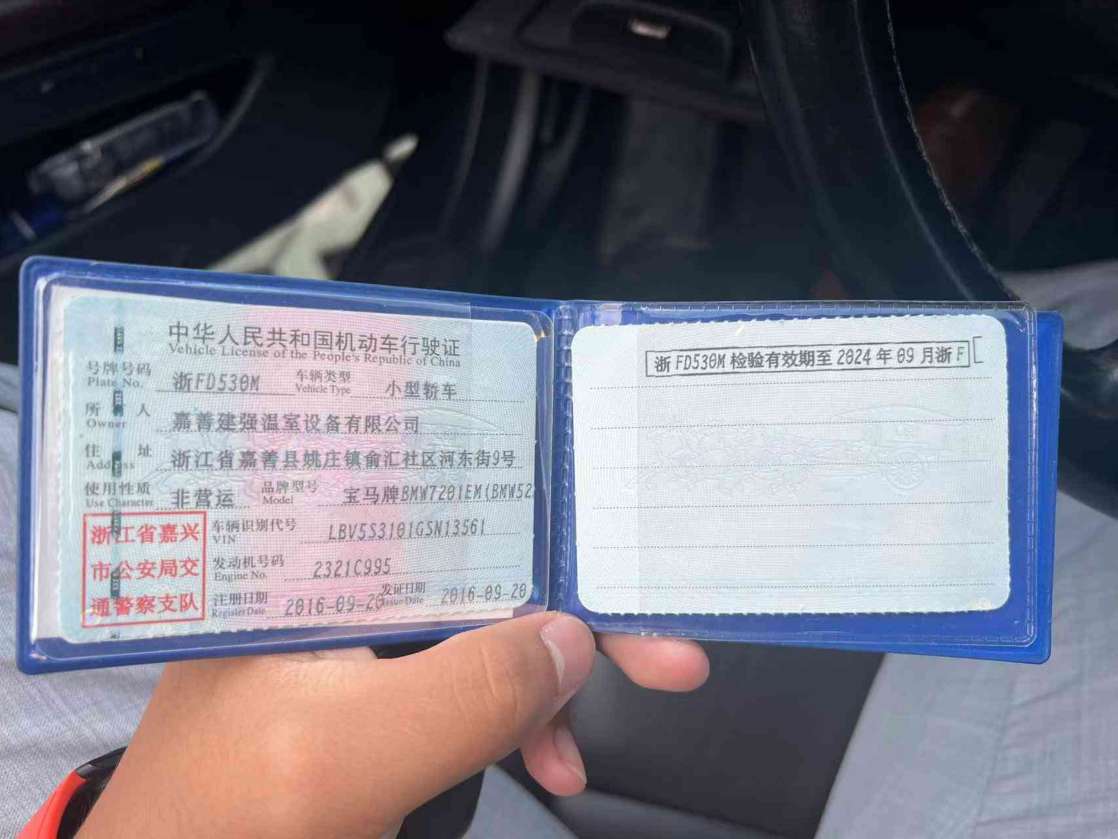 中华人民共和国机动车行驶证
Vehicle License of the People's Republic of China
号牌号码 浙FD530M 车辆类型 小型轿车
Plate No. Vehicle Type
所 人 嘉善建强温室设备有限公司
Owner
住 址 浙江省嘉善县姚庄镇俞汇社区河东街9号
Address
使用性质 非营运 品牌型号 宝马牌BMW7201EM(BMW52
Use Character Model
浙江省嘉兴
市公安局交
通警察支队
车辆识别代号 LBV5S3101GSN13561
VIN
发动机号码 2321C995
Engine No.
注册日期 2016-09-20 发证日期 2016-09-20
Register Date Issue Date
浙FD530M 检验有效期至 2024 年 09 月浙F